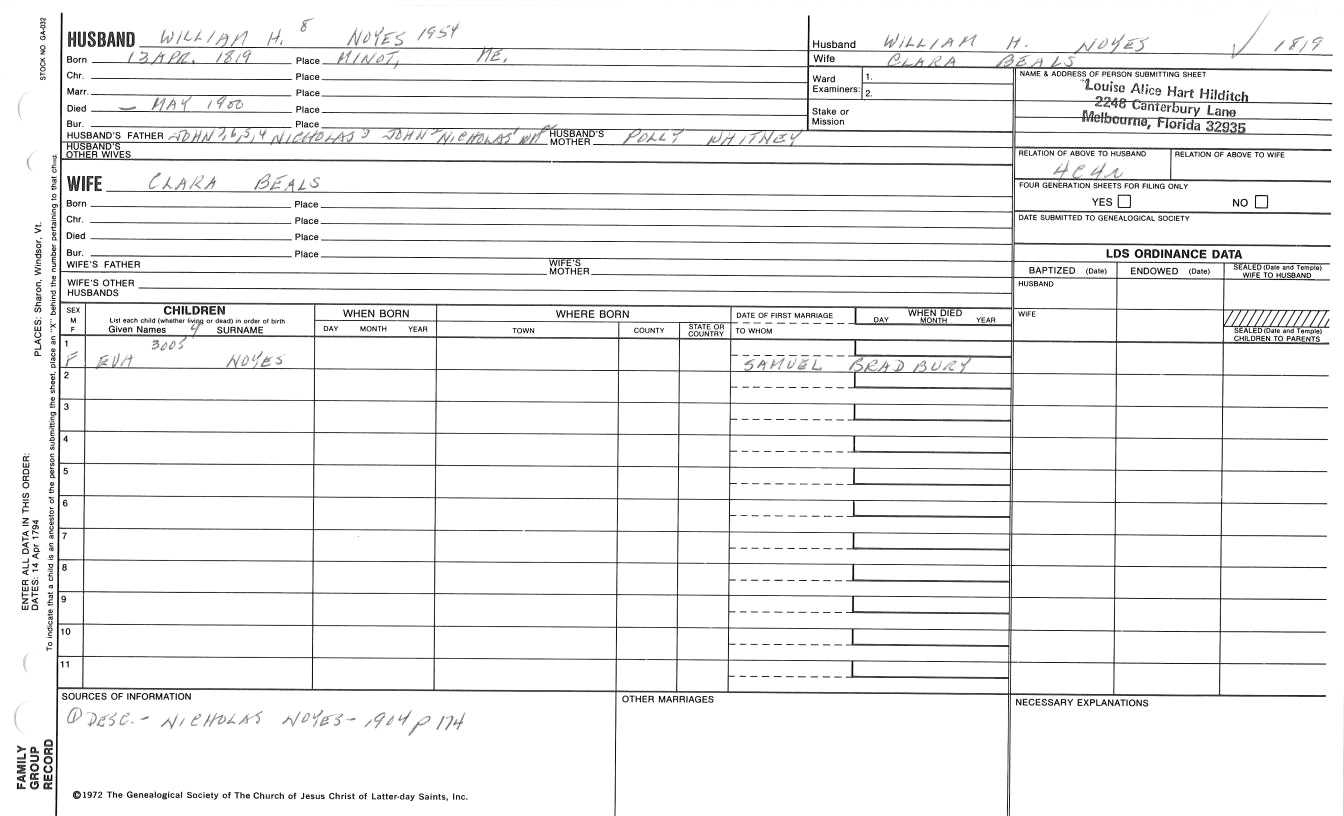 STOCK NO. GA-032
HUSBAND WILLIAM H. 8 NOYES 1954
Born 13 APR. 1819 Place MINOT, ME.
Chr. Place
Marr. Place
Died — MAY 1900 Place
Bur. Place
HUSBAND'S FATHER JOHN 7,6,5,4 NICHOLAS 3 JOHN 2 NICHOLAS 1 HUSBAND'S MOTHER POLLY WHITNEY
HUSBAND'S OTHER WIVES
Husband WILLIAM H. NOYES √ 1819
Wife CLARA BEALS
Ward Examiners: 1. 2.
Stake or Mission
NAME & ADDRESS OF PERSON SUBMITTING SHEET
Louise Alice Hart Hilditch
2248 Canterbury Lane
Melbourne, Florida 32935
RELATION OF ABOVE TO HUSBAND RELATION OF ABOVE TO WIFE
4C4R
FOUR GENERATION SHEETS FOR FILING ONLY
YES NO
DATE SUBMITTED TO GENEALOGICAL SOCIETY
WIFE CLARA BEALS
Born Place
Chr. Place
Died Place
Bur. Place
WIFE'S FATHER WIFE'S MOTHER
WIFE'S OTHER HUSBANDS
LDS ORDINANCE DATA
BAPTIZED (Date) ENDOWED (Date) SEALED (Date and Temple) WIFE TO HUSBAND
HUSBAND
WIFE
SEALED (Date and Temple) CHILDREN TO PARENTS
SEX M F
CHILDREN
List each child (whether living or dead) in order of birth
Given Names SURNAME
WHEN BORN
DAY MONTH YEAR
WHERE BORN
TOWN COUNTY STATE OR COUNTRY
DATE OF FIRST MARRIAGE
TO WHOM
WHEN DIED
DAY MONTH YEAR
1
3005
F EVA NOYES SAMUEL BRADBURY
2
3
4
5
6
7
8
9
10
11
SOURCES OF INFORMATION
① DESC. - NICHOLAS NOYES - 1904 p 174
OTHER MARRIAGES
NECESSARY EXPLANATIONS
©1972 The Genealogical Society of The Church of Jesus Christ of Latter-day Saints, Inc.
PLACES: Sharon, Windsor, Vt.
ENTER ALL DATA IN THIS ORDER:
DATES: 14 Apr 1794
To indicate that a child is an ancestor of the person submitting the sheet, place an "X" behind the number pertaining to that child.
FAMILY GROUP RECORD